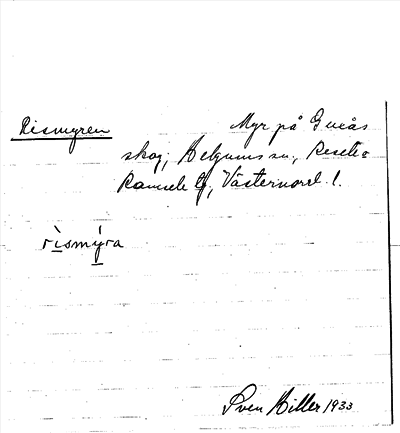 Rismyren
Myr på Guås
skog, Helgums sn, Resele o
Ramsele tg, Västernorrl. l.
rismyra
Sven Hiller 1933